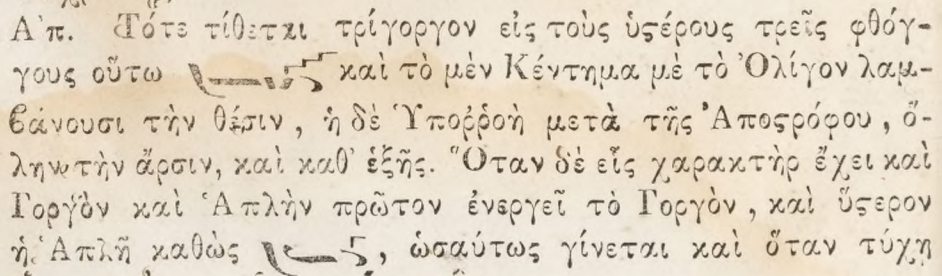 Ἀπ. Τότε τίθεται τρίγοργον εἰς τοὺς ὑϛέρους τρεῖς φθόγ-
γους οὕτω καὶ τὸ μὲν Κέντημα μὲ τὸ Ὀλίγον λαμ-
βάνουσι τὴν θέσιν, ἡ δὲ Ὑποῤῥοὴ μετὰ τῆς Ἀποϛρόφου, ὅ-
λην τὴν ἄρσιν, καὶ καθ' ἑξῆς. Ὅταν δὲ εἷς χαρακτὴρ ἔχει καὶ
Γοργὸν καὶ Ἁπλὴν πρῶτον ἐνεργεῖ τὸ Γοργὸν, καὶ ὕϛερον
ἡ Ἁπλῆ καθὼς , ὡσαύτως γίνεται καὶ ὅταν τύχῃ